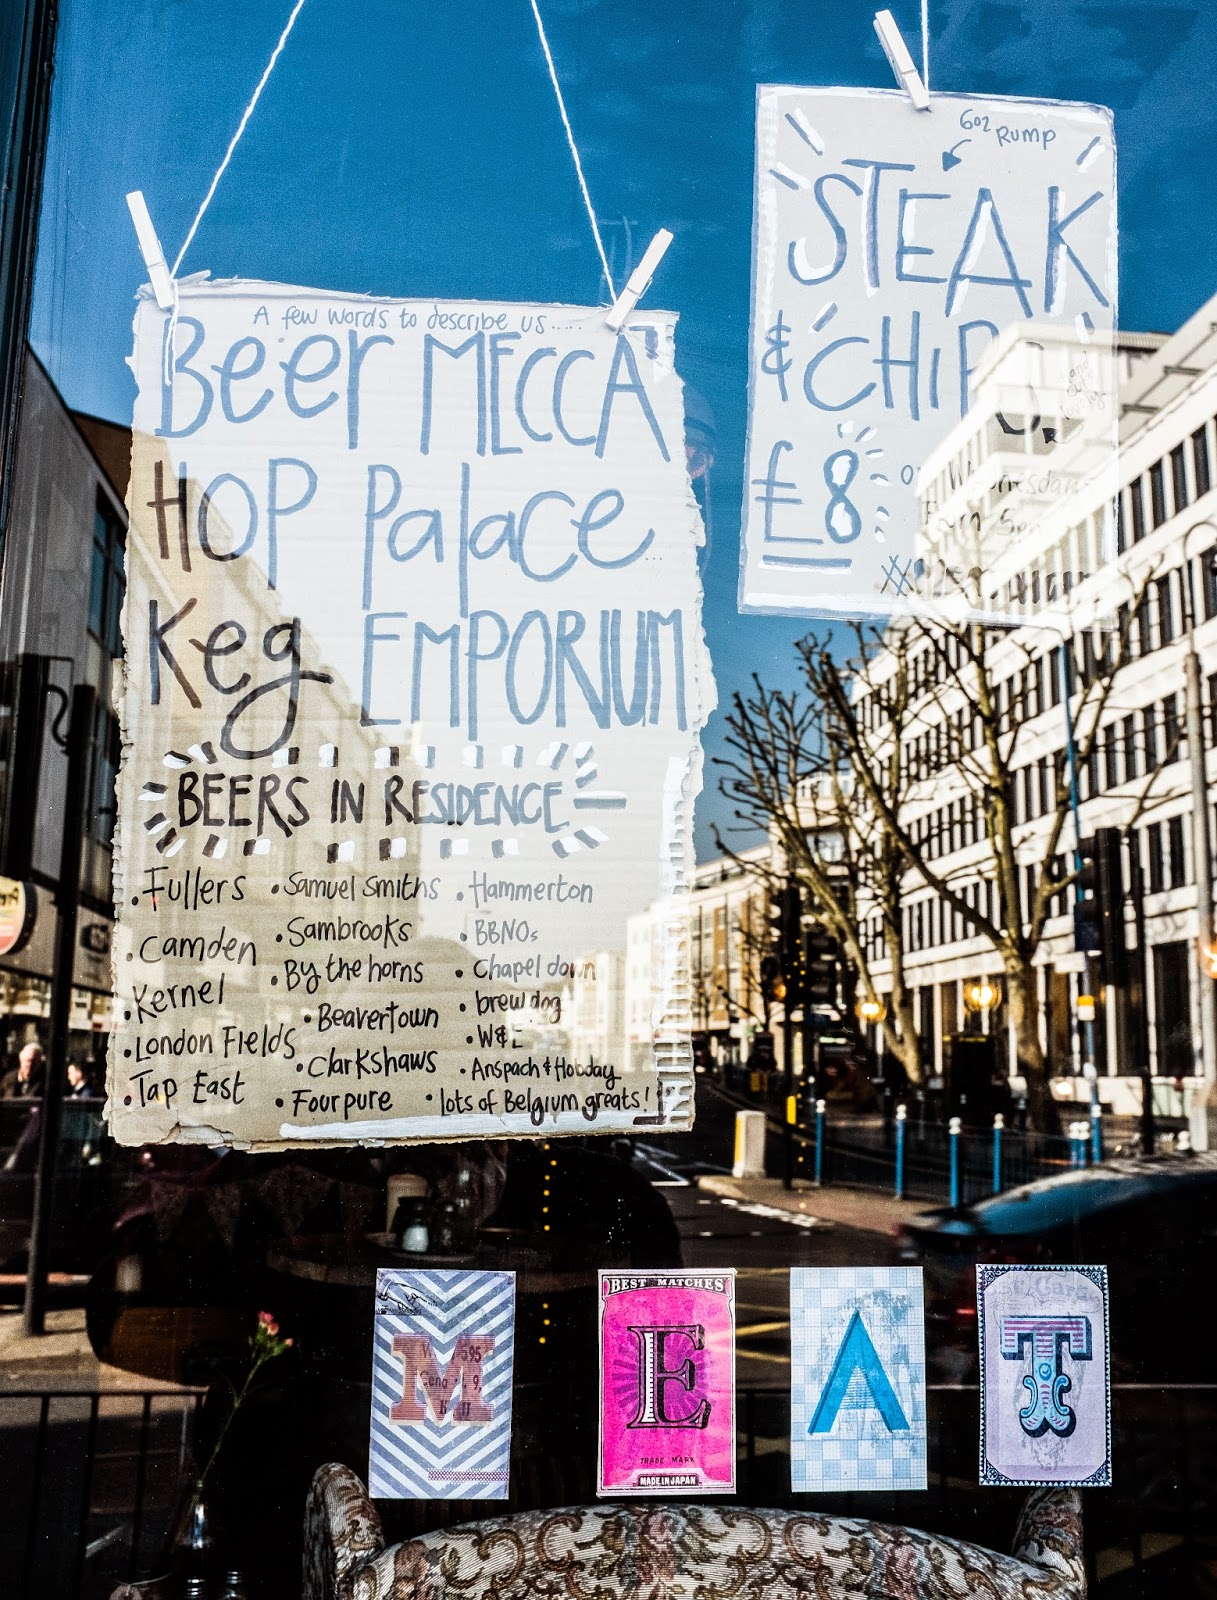 A few words to describe us.....
Beer MECCA
HOP Palace...
Keg EMPORIUM
BEERS IN RESIDENCE
• Fullers
• Camden
• Kernel
• London Fields
• Tap East
• Samuel Smiths
• Sambrooks
• By the horns
• Beavertown
• Clarkshaws
• Fourpure
• Hammerton
• BBNOs
• Chapel down
• brewdog
• W&E
• Anspach & Hobday
• lots of Belgium greats!
6oz Rump
STEAK
& CHIPS
£8
M
BEST MATCHES
E
TRADE MARK
MADE IN JAPAN
A
T